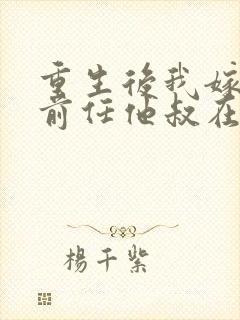 重生後我嫁
前任他叔在
楊千紫